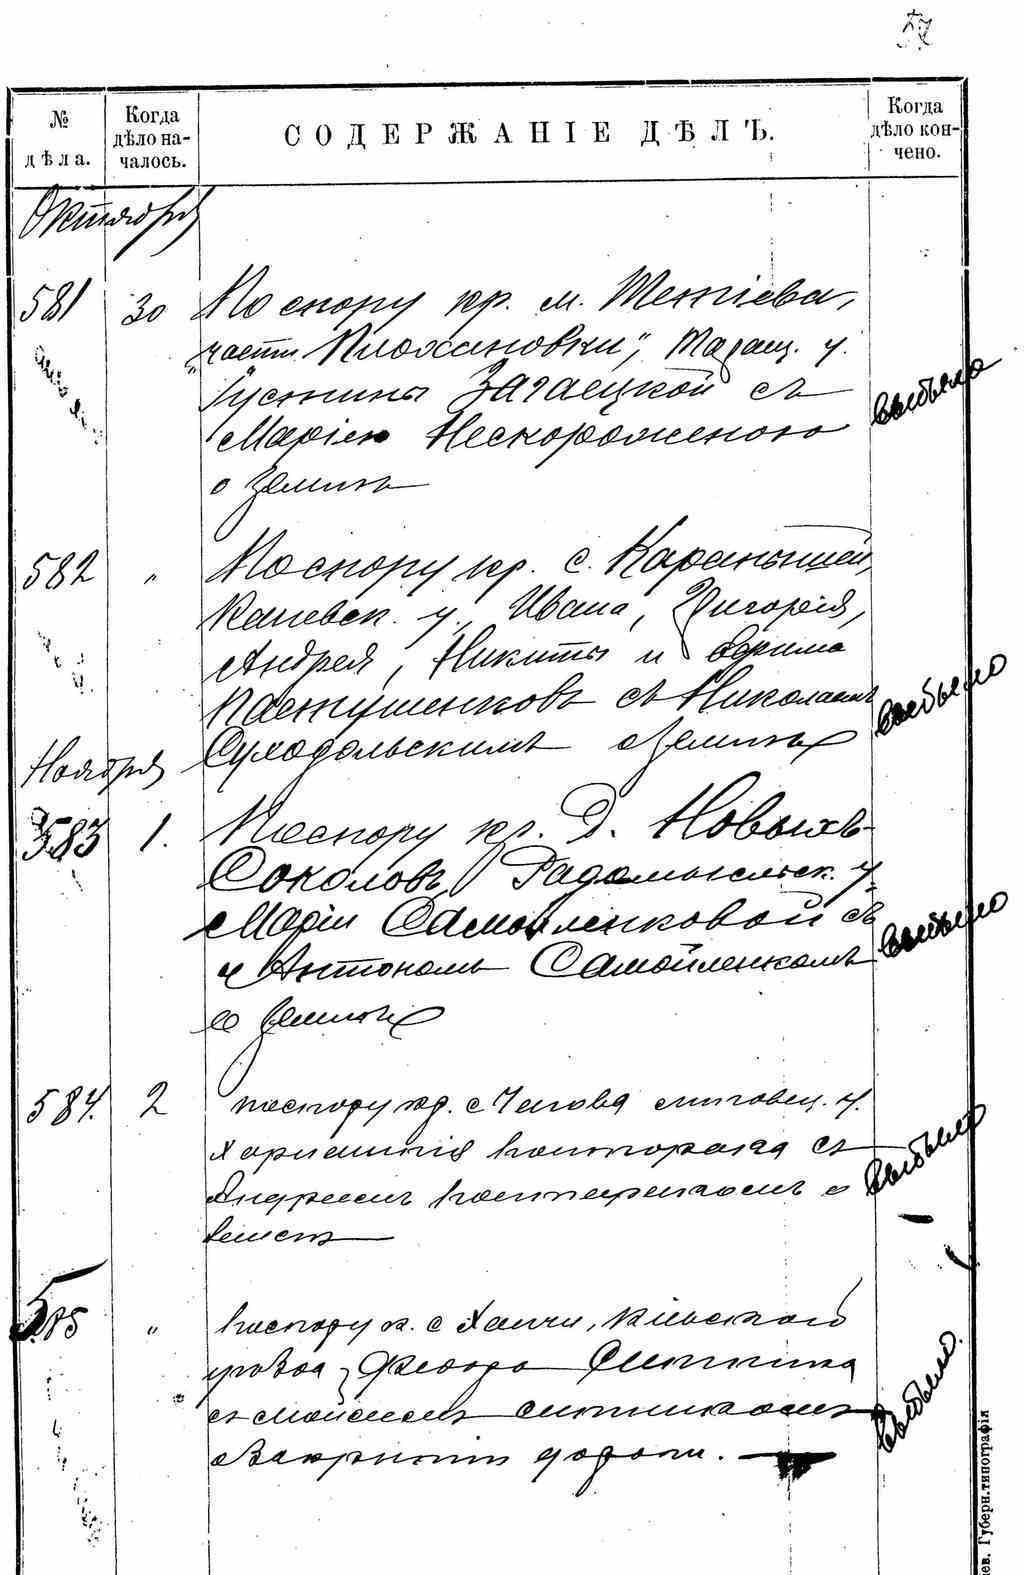 57
№ дѣла.
Когда дѣло началось.
СОДЕРЖАНІЕ ДѢЛЪ.
Когда дѣло кончено.
Октября
581 30 По спору кр. м. Тетіева,
"части Плохановки", Таращ. у.
Устины Загаецкой съ
Маріею Нескороженою
о землѣ
выбыло
582 " По спору кр. с. Карапышей,
Каневск. у., Ивана, Григорія,
Андрея, Никиты и Ефима
Пастушенковъ съ Николаемъ
Суходольскимъ о землѣ
выбыло
Ноября
583 1. По спору кр. д. Новыхъ
Соколовъ, Радомысльск. у.
Маріи Самойленковой съ
Антономъ Самойленкомъ
о землѣ
выбыло
584. 2 По спору кр. с
у.
съ
Андреемъ о
выбыло
585 " По спору к. с Хапчи, Кіевскаго
уѣзда, Федора Ситника
съ Моисеемъ Ситникомъ
о закрытіи дороги.
выбыло.
Губерн. типографія